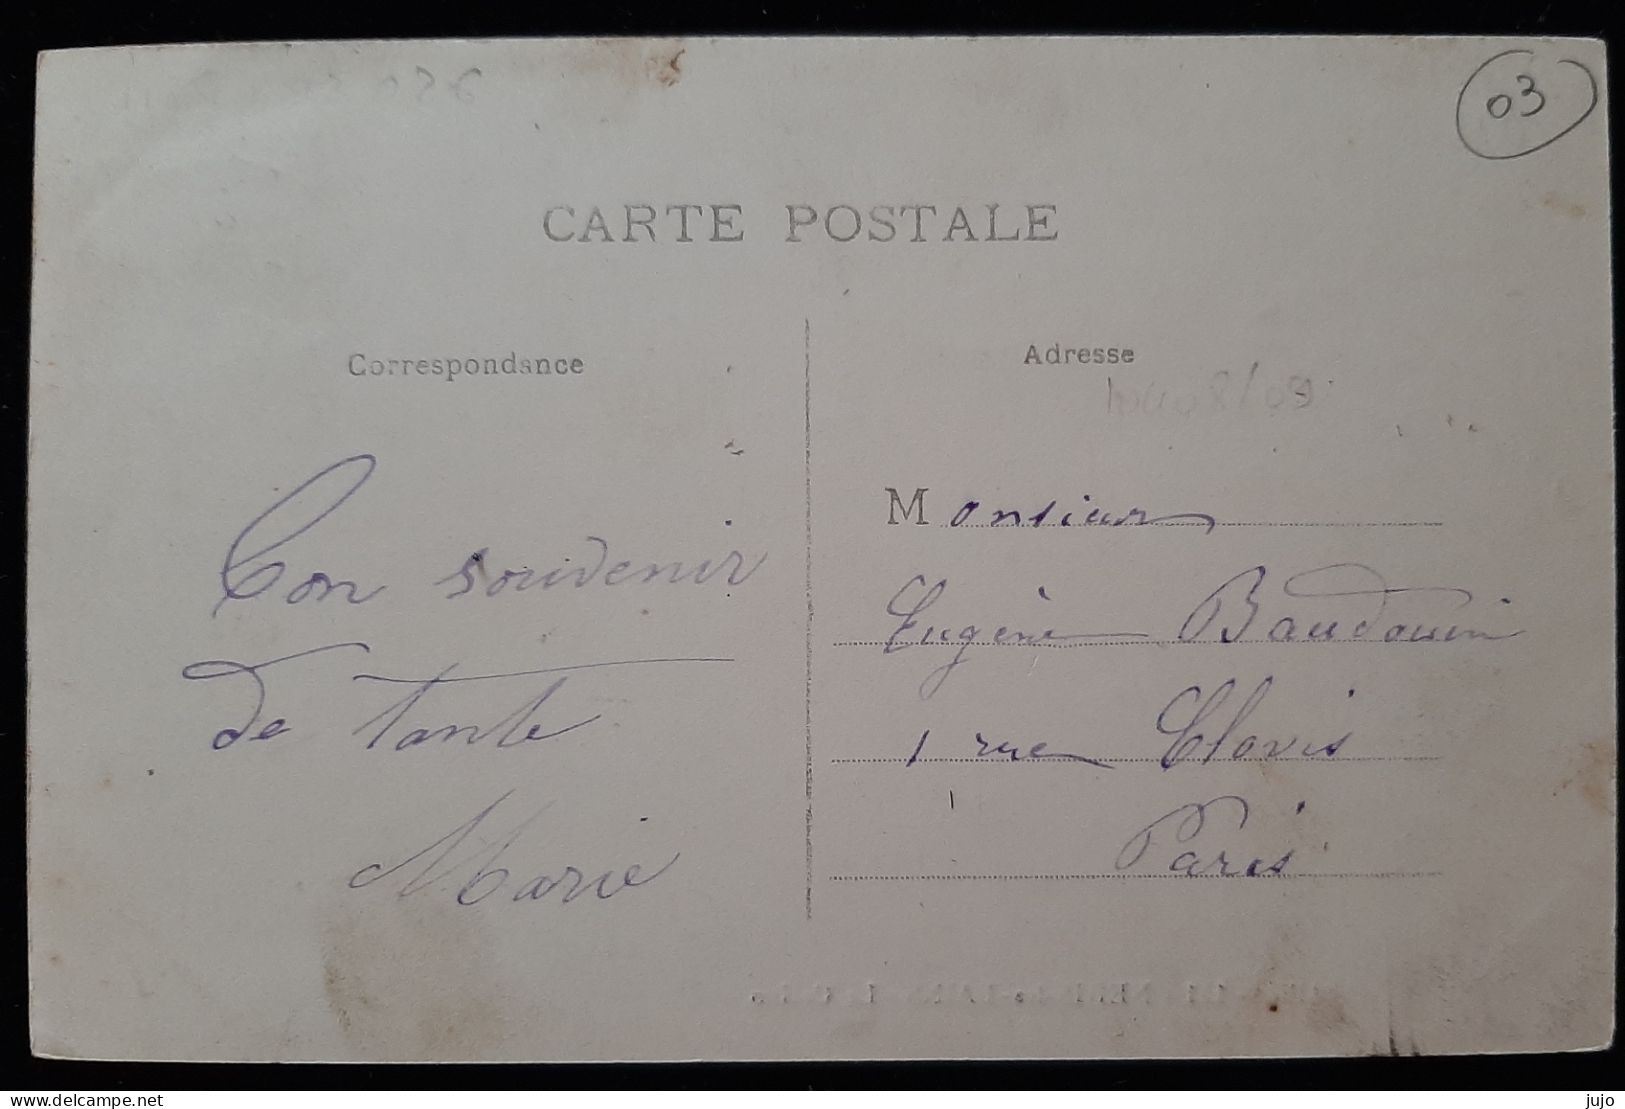 03
CARTE POSTALE
Correspondance
Adresse
Bon souvenir
de tante
Marie
Monsieur
Eugène Baudouin
1 rue Clovis
Paris
delcampe.net
jujo